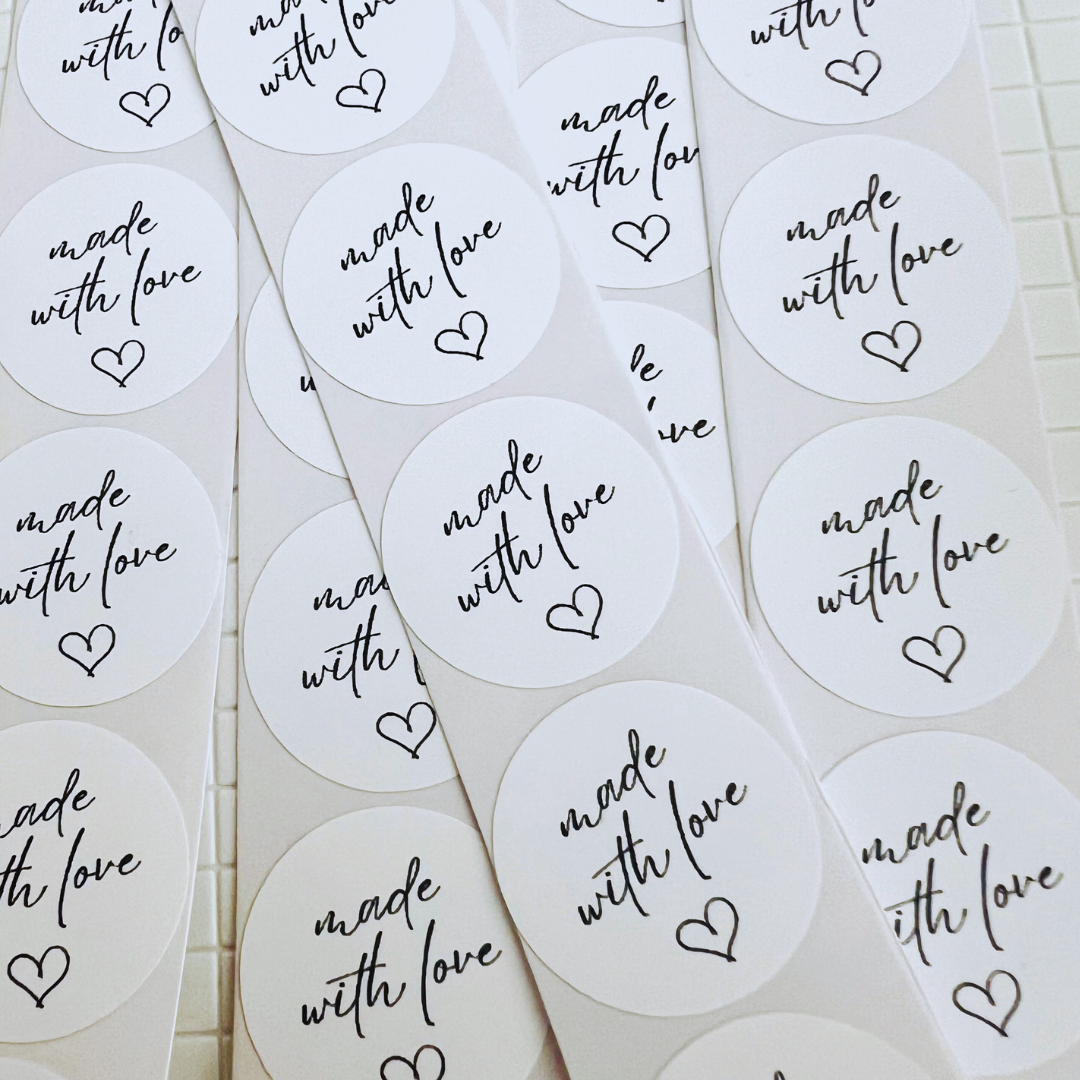 made
with lo
made
with love
made
with love
made
with lov
with love
made
with love
made
with love
made
with love
made
with love
made
with love
made
with love
made
with
made
with love
made
with love
made
love
made
with love
made
love